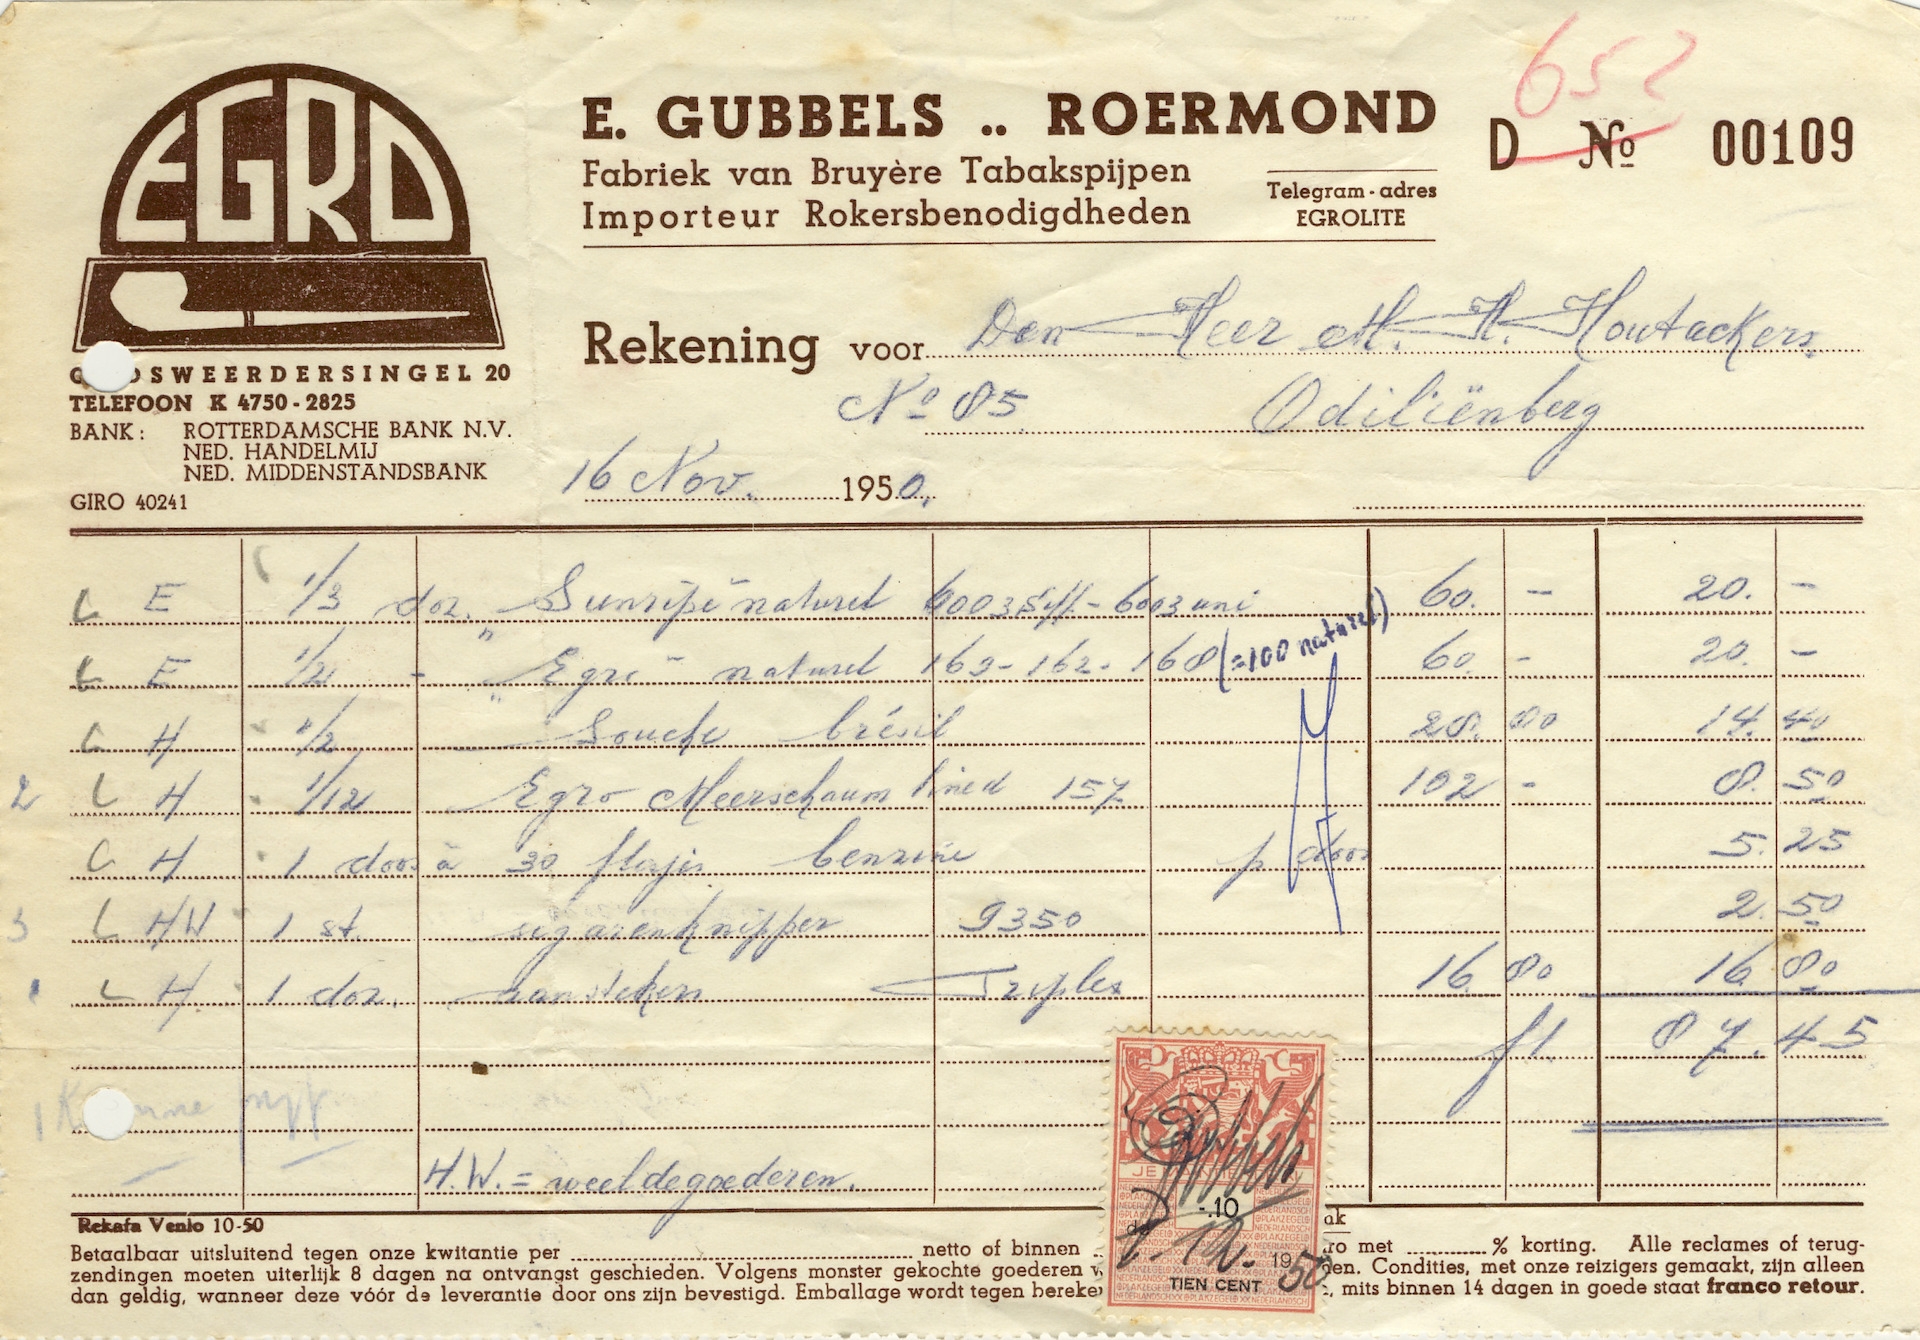 EGRO
E. GUBBELS .. ROERMOND
Fabriek van Bruyère Tabakspijpen
Importeur Rokersbenodigdheden
Telegram - adres
EGROLITE
652
D No 00109
SWEERDERSINGEL 20
TELEFOON K 4750 - 2825
BANK: ROTTERDAMSCHE BANK N.V.
NED. HANDELMIJ
NED. MIDDENSTANDSBANK
GIRO 40241
Rekening voor Den Heer M. H. Houtackers
No 85 Odiliënberg
16 Nov. 1950.
L E 1/3 doz. "Sunripe" naturel 6003 Siff - 6003 uni 60. - 20. -
L E 1/2 - "Egro" naturel 163 - 162 - 168 (=100 naturel) 60. - 20. -
L H 1/2 Souche brésil 28. 80 14. 40
2 L H 1/12 Egro Meerschaum lined 157 102 - 8. 50
L H 1 doos à 30 flesjes benzine p. doos 5. 25
3 L HW 1 st. sigarenknipper 9350 2. 50
1 L H 1 doz. aanstekers Triplex 16. 80 16. 80
fl. 87.45
H.W. = weeldegoederen.
-.10
19 50
TIEN CENT
Rekafa Venlo 10-50
Betaalbaar uitsluitend tegen onze kwitantie per netto of binnen ro met % korting. Alle reclames of terug-
zendingen moeten uiterlijk 8 dagen na ontvangst geschieden. Volgens monster gekochte goederen en. Condities, met onze reizigers gemaakt, zijn alleen
dan geldig, wanneer deze vóór de leverantie door ons zijn bevestigd. Emballage wordt tegen bereke , mits binnen 14 dagen in goede staat franco retour.